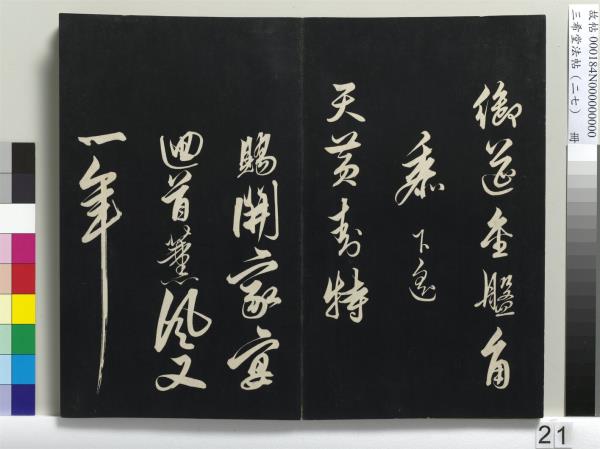 故帖 000184N000000000
三希堂法帖(二七) 冊
御筵金盤角
黍下遙
天黃封特
賜開家宴
迴首薰風又
一年
21